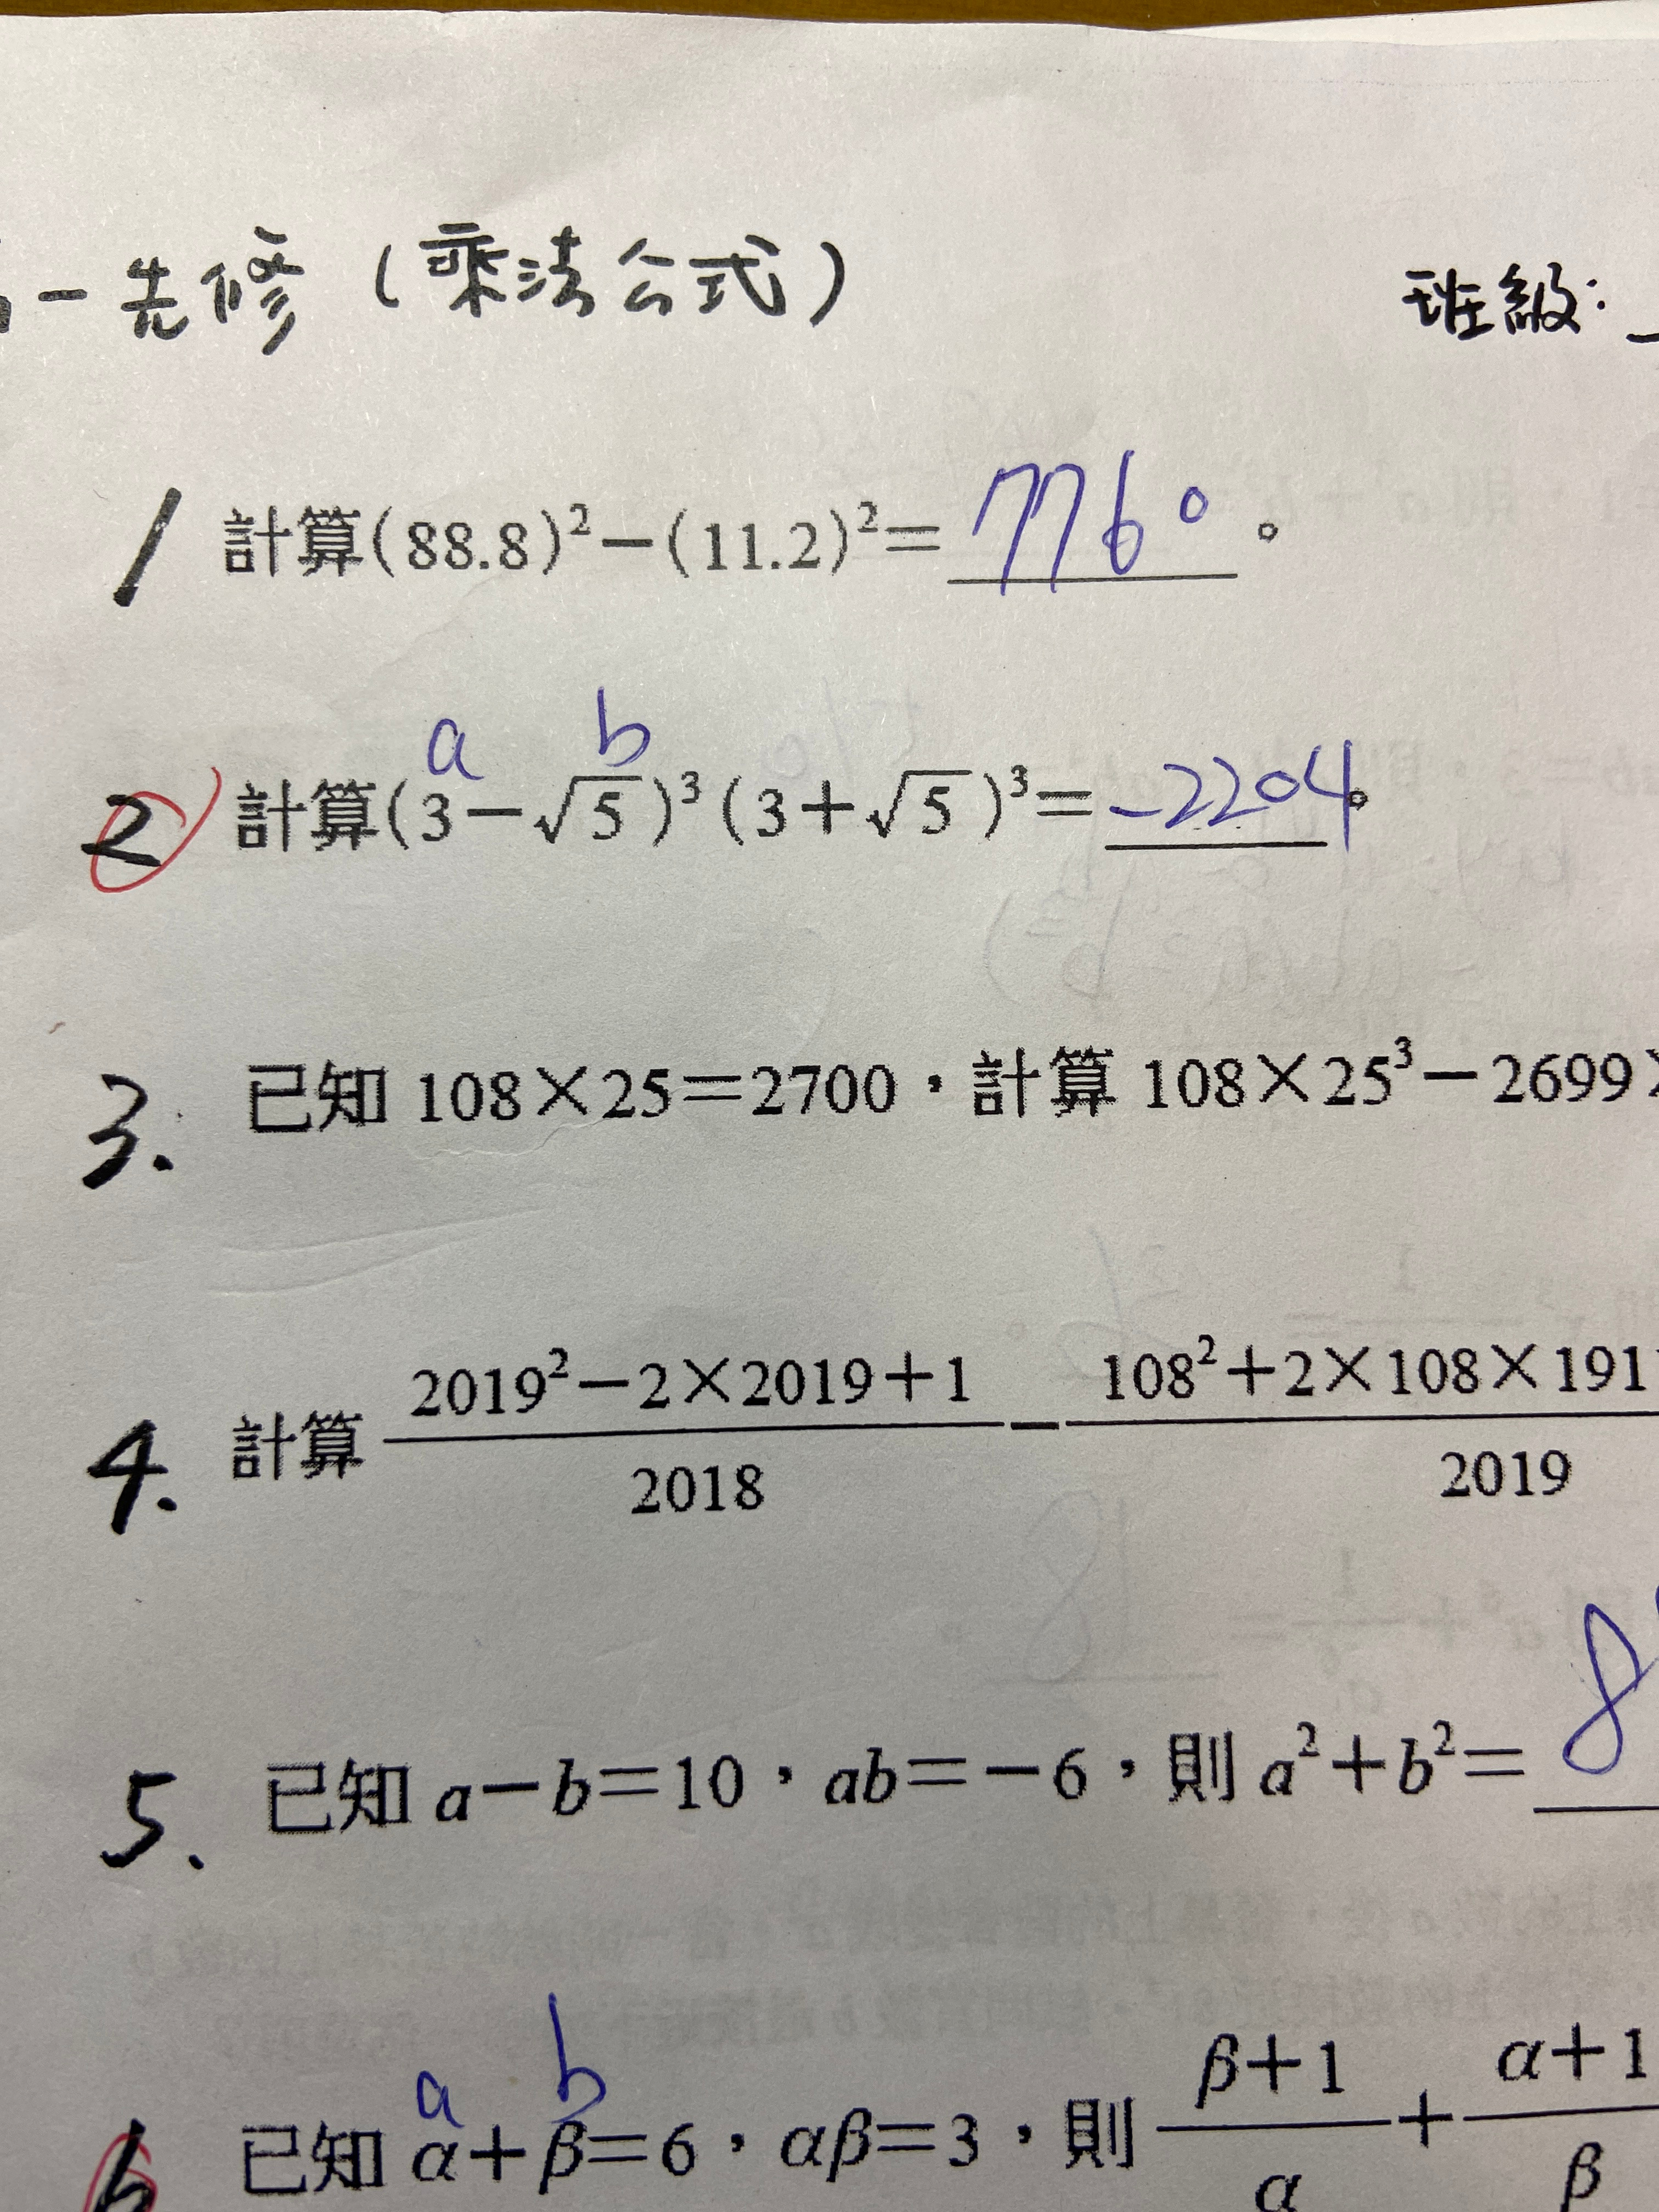 一先修(乘法公式) 班級:
1 計算(88.8)²-(11.2)²=7760。
a b
2 計算(3-√5)³(3+√5)³=-2204。
3. 已知 108×25=2700,計算 108×25³-2699×
4. 計算 2019²-2×2019+1 / 2018 - 108²+2×108×191 / 2019
5. 已知 a-b=10,ab=-6,則 a²+b²=8
a b
6 已知 α+β=6,αβ=3,則 β+1 / α + α+1 / β